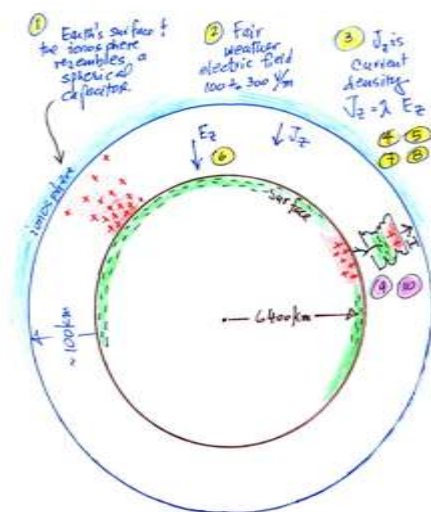 1
Earth's surface &
the ionosphere
resembles a
spherical
capacitor
2 Fair
weather
electric field
100 to 300 V/m
3 Jz is
current
density
Jz = λ Ez
4 5
7 8
Ez
Jz
6
ionosphere
surface
I
9 10
6400 km
~100km